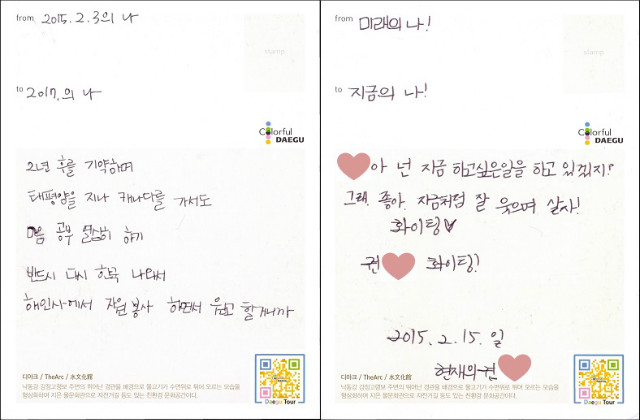 from 2015.2.3의 나
stamp
to 2017.의 나
Colorful
DAEGU
2년 후를 기약하며
태평양을 지나 캐나다를 가서도
마음 공부 열심히 하기
반드시 다시 한국 나와서
해인사에서 자원봉사 하면서 웃고 할거니까
디아크 / TheArc / 水文化館
낙동강 강정고령보 주변의 뛰어난 경관을 배경으로 물고기가 수면위로 뛰어 오르는 모습을
형상화하여 지은 물문화관으로 자전거길 등도 있는 친환경 문화공간이다.
Daegu Tour
from 미래의 나!
stamp
to 지금의 나!
Colorful
DAEGU
아 넌 지금 하고싶은일을 하고 있겠지?
그래. 좋아. 지금처럼 잘 웃으며 살자!
화이팅♥
권 화이팅!
2015.2.15.일
현재의 권
디아크 / TheArc / 水文化館
낙동강 강정고령보 주변의 뛰어난 경관을 배경으로 물고기가 수면위로 뛰어 오르는 모습을
형상화하여 지은 물문화관으로 자전거길 등도 있는 친환경 문화공간이다.
Daegu Tour